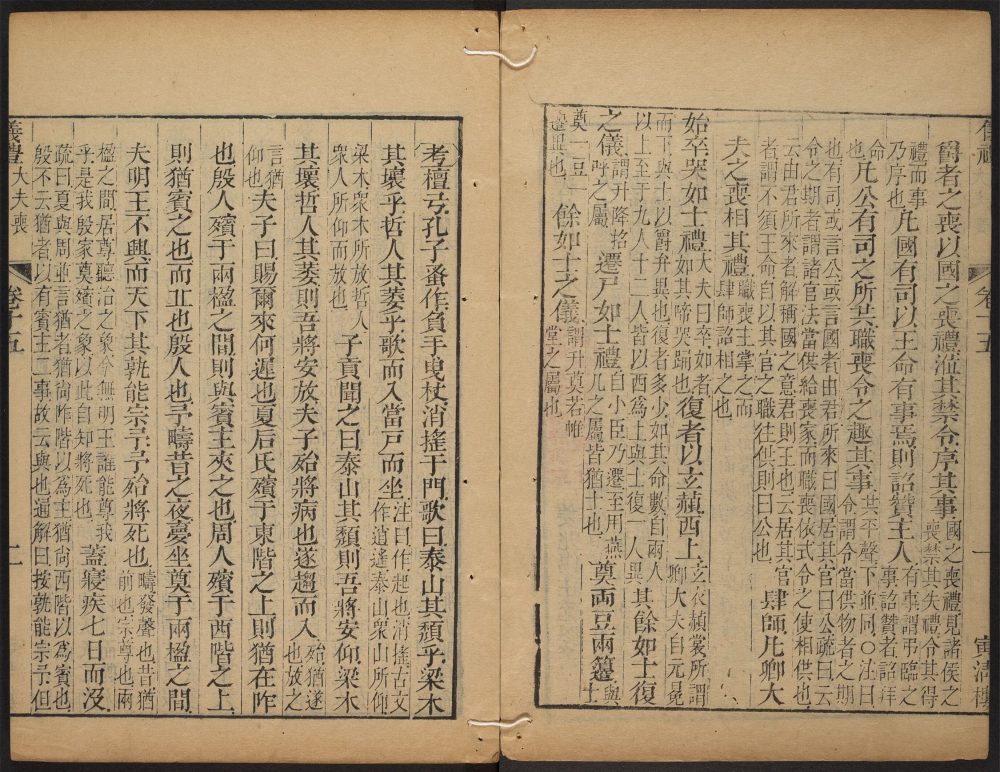 卷十五 一 寅清樓
爵者之喪以國之喪禮涖其禁令序其事國之喪禮見諸侯之喪禁其失禮令其得
禮而事乃序也凡國有司以王命有事焉則詔贊主人有事謂弔臨之事詔贊者詔拜
命也凡公有司之所共職喪令之趣其事共平聲下並同○注曰令謂令當供物者之期
也有司或言公或言國者由君所來曰國居其官曰公疏曰云令之期者謂諸官法當供給喪家而職喪依式令之使相供也
云由君所來者解稱國之意君則王也云居其官者謂不須王命自以其官之職往供則曰公也肆師凡卿大
夫之喪相其禮職喪主掌之而肆師詔相之也
始卒哭如士禮大夫曰卒如者如其啼哭踊也復者以玄赬西上玄衣赬裳所謂卿大夫自元冕
而下與士以爵弁異也復者多少如其命數自兩人以上至于九人十二人皆以西為上與士復一人異其餘如士復
之儀謂升降招呼之屬遷尸如士禮自小臣乃遷至用燕几之屬皆猶士也奠両豆兩籩與士
奠一豆一籩異也餘如士之儀謂升奠若帷堂之屬也
考檀弓孔子蚤作負手曳杖消搖于門歌曰泰山其頹乎梁木
其壞乎哲人其萎乎歌而入當戶而坐注曰作起也消搖古文作逍遙泰山衆山所仰
梁木衆木所放哲人衆人所仰而放也子貢聞之曰泰山其頹則吾將安仰梁木
其壞哲人其萎則吾將安放夫子殆將病也遂趨而入殆猶遂也放之
言猶仰也夫子曰賜爾來何遲也夏后氏殯于東階之上則猶在阼
也殷人殯于兩楹之間則與賓主夾之也周人殯于西階之上
則猶賓之也而丘也殷人也予疇昔之夜夢坐奠于兩楹之間
夫明王不興而天下其孰能宗予予殆將死也疇發聲也昔猶前也宗尊也兩
楹之間居尊聽治之象今無明王誰能尊我乎是我殷家奠殯之象以此自知將死也蓋寢疾七日而沒
疏曰夏與周並言猶者猶尚阼階以為主猶尚西階以為賓也殷不云猶者以有賓主二事故云與也通解曰按孰能宗予但
儀禮 大夫喪 卷十五 二